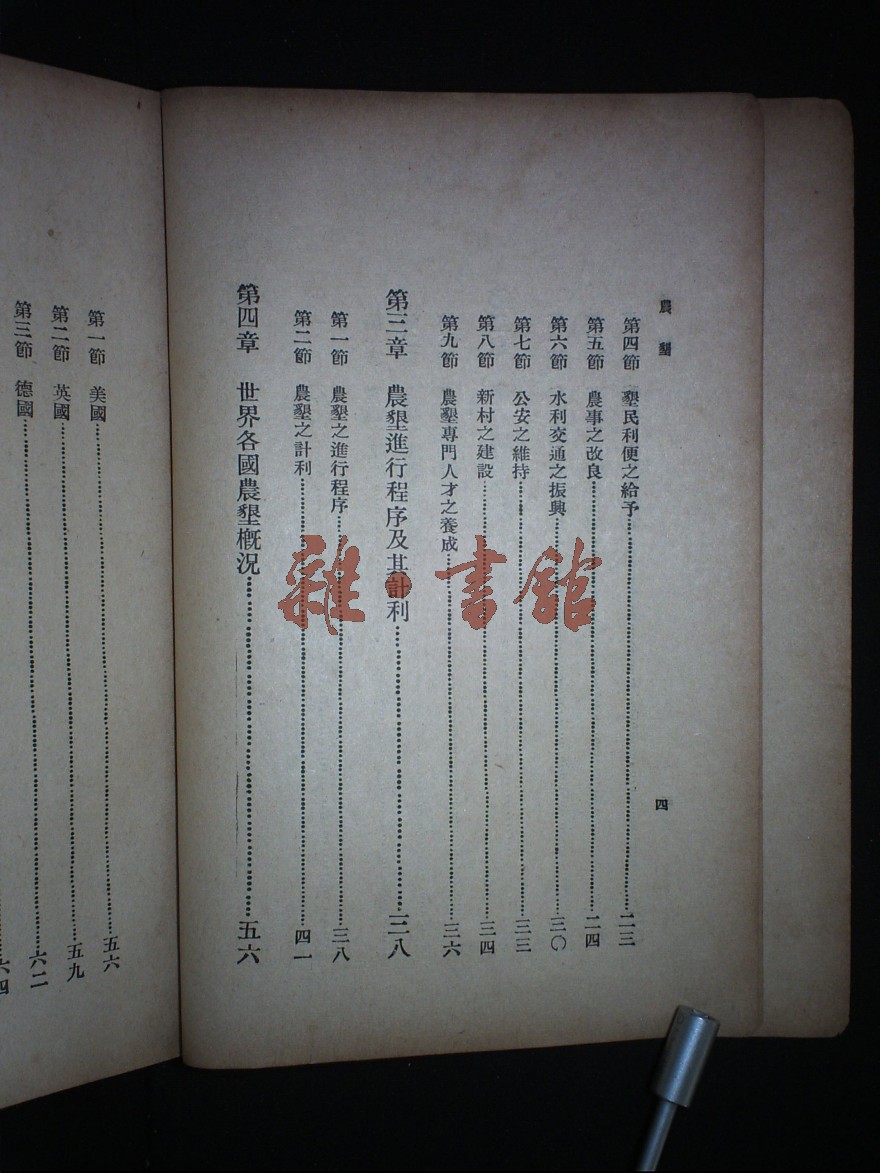 農墾
四
第四節 墾民利便之給予……二三
第五節 農事之改良……二四
第六節 水利交通之振興……三〇
第七節 公安之維持……三三
第八節 新村之建設……三四
第九節 農墾專門人才之養成……三六
第三章 農墾進行程序及其計利……三八
第一節 農墾之進行程序……三八
第二節 農墾之計利……四一
第四章 世界各國農墾槪況……五六
第一節 美國……五六
第二節 英國……五九
第三節 德國……六二
六四
雜·書館